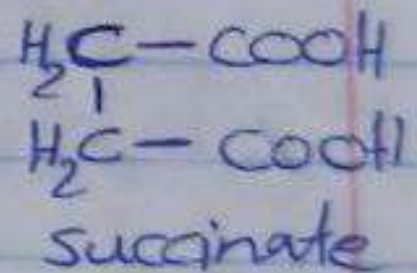 H₂C-COOH
H₂C-COOH
succinate